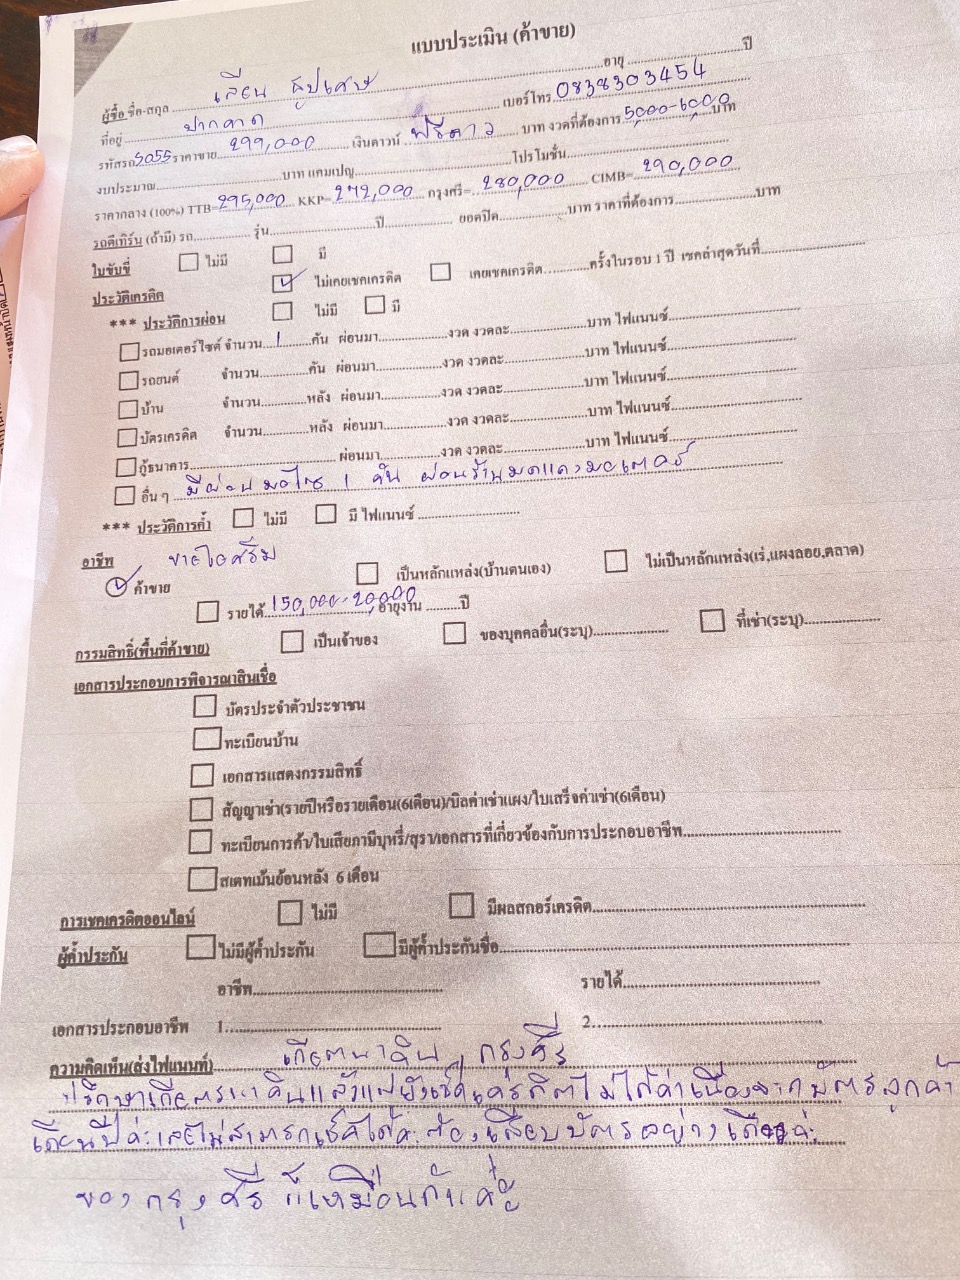 แบบประเมิน (ค้าขาย)
ผู้ซื้อ ชื่อ-สกุล เลียน ธูปเศษ อายุ ปี
ที่อยู่ ปากคาด เบอร์โทร 0838303454
รหัสรถ 3055 ราคาขาย 299,000 เงินดาวน์ ฟรีดาว บาท งวดที่ต้องการ 5000-6000 บาท
งบประมาณ บาท แคมเปญ โปรโมชั่น
ราคากลาง (100%) TTB= 295,000 KKP= 272,000 กรุงศรี= 280,000 CIMB= 290,000
รถตีเทิร์น (ถ้ามี) รถ รุ่น ปี ยอดปิด บาท ราคาที่ต้องการ บาท
ใบขับขี่ ไม่มี มี
ประวัติเครดิต ไม่เคยเชคเครดิต เคยเชคเครดิต ครั้งในรอบ 1 ปี เชคล่าสุดวันที่
*** ประวัติการผ่อน ไม่มี มี
รถมอเตอร์ไซค์ จำนวน 1 คัน ผ่อนมา งวด งวดละ บาท ไฟแนนซ์
รถยนต์ จำนวน คัน ผ่อนมา งวด งวดละ บาท ไฟแนนซ์
บ้าน จำนวน หลัง ผ่อนมา งวด งวดละ บาท ไฟแนนซ์
บัตรเครดิต จำนวน หลัง ผ่อนมา งวด งวดละ บาท ไฟแนนซ์
กู้ธนาคาร ผ่อนมา งวด งวดละ บาท ไฟแนนซ์
อื่น ๆ มีผ่อนมอไซ 1 คัน ผ่อนร้านมดแดงมอเตอร์
*** ประวัติการค้ำ ไม่มี มี ไฟแนนซ์
อาชีพ ขายไอศรีม
ค้าขาย เป็นหลักแหล่ง(บ้านตนเอง) ไม่เป็นหลักแหล่ง(เร่,แผงลอย,ตลาด)
รายได้ 150,000-20,000 อายุงาน ปี
กรรมสิทธิ์(พื้นที่ค้าขาย) เป็นเจ้าของ ของบุคคลอื่น(ระบุ) ที่เช่า(ระบุ)
เอกสารประกอบการพิจารณาสินเชื่อ
บัตรประจำตัวประชาชน
ทะเบียนบ้าน
เอกสารแสดงกรรมสิทธิ์
สัญญาเช่า(รายปีหรือรายเดือน(6เดือน)/บิลค่าเช่าแผง/ใบเสร็จค่าเช่า(6เดือน)
ทะเบียนการค้า/ใบเสียภามีบุหรี่/สุรา/เอกสารที่เกี่ยวข้องกับการประกอบอาชีพ
สเตทเม้นย้อนหลัง 6 เดือน
การเชคเครดิตออนไลน์ ไม่มี มีผลสกอร์เครดิต
ผู้ค้ำประกัน ไม่มีผู้ค้ำประกัน มีผู้ค้ำประกันชื่อ
อาชีพ รายได้
เอกสารประกอบอาชีพ 1. 2.
ความคิดเห็น(ส่งไฟแนนท์) เกียตนาคิน กรุงศรี
ปรึกษาเกียตรนาคินแล้วแต่ยังเช็คเครดิตไม่ได้ค่าเนื่องจากบัตรลูกค้า
เดือนปีค่ะเลยไม่สามารถเช็คได้ค่ะ ต้องเสียบบัตรอย่างเดียวค่ะ
ของกรุงศรีก็เหมือนกันค่ะ